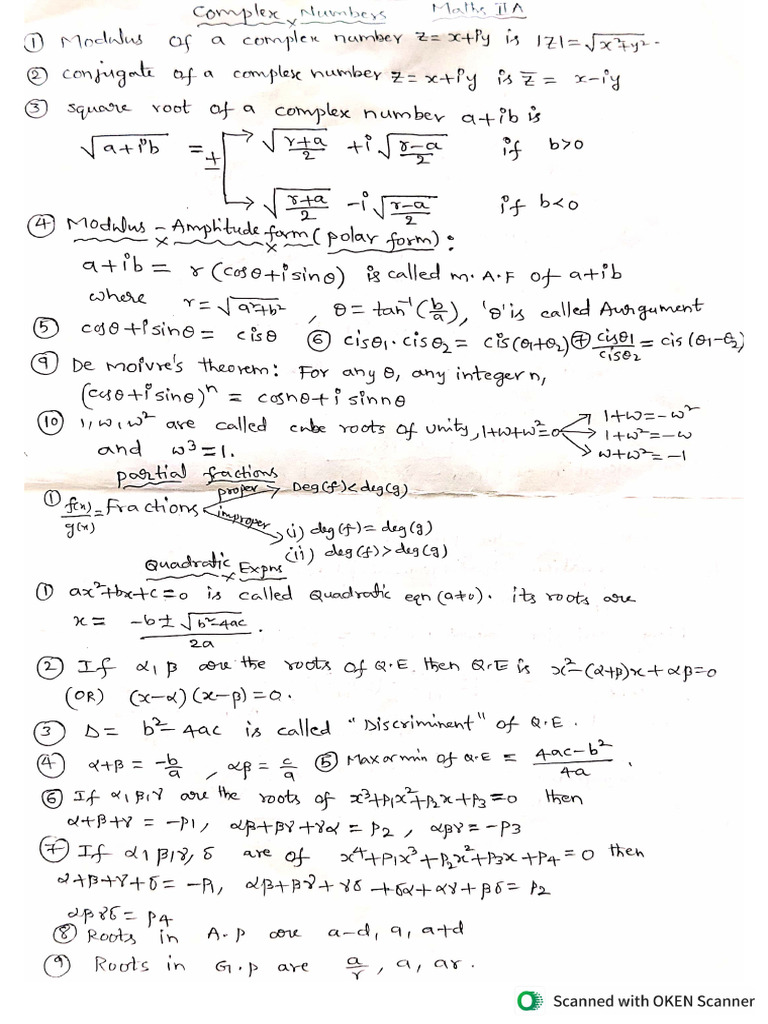 Complex Numbers Maths IIA
① Modulus of a complex number z = x+iy is |z| = √x²+y².
② conjugate of a complex number z = x+iy is z̅ = x-iy
③ square root of a complex number a+ib is
√a+ib = ± √(r+a)/2 + i√(r-a)/2 if b>0
√(r+a)/2 - i√(r-a)/2 if b<0
④ Modulus - Amplitude form (polar form):
a+ib = r(cosθ+isinθ) is called M.A.F of a+ib
where r = √a²+b², θ = tan⁻¹(b/a), 'θ' is called Aurgument
⑤ cosθ+isinθ = cisθ ⑥ cisθ1.cisθ2 = cis(θ1+θ2) ⑦ cisθ1/cisθ2 = cis(θ1-θ2)
⑨ De moivre's theorem: For any θ, any integer n,
(cosθ+isinθ)ⁿ = cosnθ+isinnθ
⑩ 1, ω, ω² are called cube roots of unity, 1+ω+ω²=0 → 1+ω=-ω²
→ 1+ω²=-ω
→ ω+ω²=-1
and ω³=1.
partial fractions
① f(x)/g(x) = Fractions proper → Deg(f)<deg(g)
improper → (i) deg(f)=deg(g)
(ii) deg(f)>deg(g)
Quadratic Expns
① ax²+bx+c=0 is called Quadratic eqn (a≠0). its roots are
x = -b±√b²-4ac/2a.
② If α, β are the roots of Q.E. then Q.E is x²-(α+β)x+αβ=0
(OR) (x-α)(x-β)=0.
③ Δ = b²-4ac is called "Discriminent" of Q.E.
④ α+β = -b/a, αβ = c/a ⑤ Max or min of Q.E = 4ac-b²/4a.
⑥ If α, β, γ are the roots of x³+p1x²+p2x+p3=0 then
α+β+γ = -p1, αβ+βγ+γα = p2, αβγ = -p3
⑦ If α, β, γ, δ are of x⁴+p1x³+p2x²+p3x+p4=0 then
α+β+γ+δ = -p1, αβ+βγ+γδ+δα+αγ+βδ = p2
αβγδ = p4
⑧ Roots in A.p are a-d, a, a+d
⑨ Roots in G.p are a/r, a, ar.
Scanned with OKEN Scanner